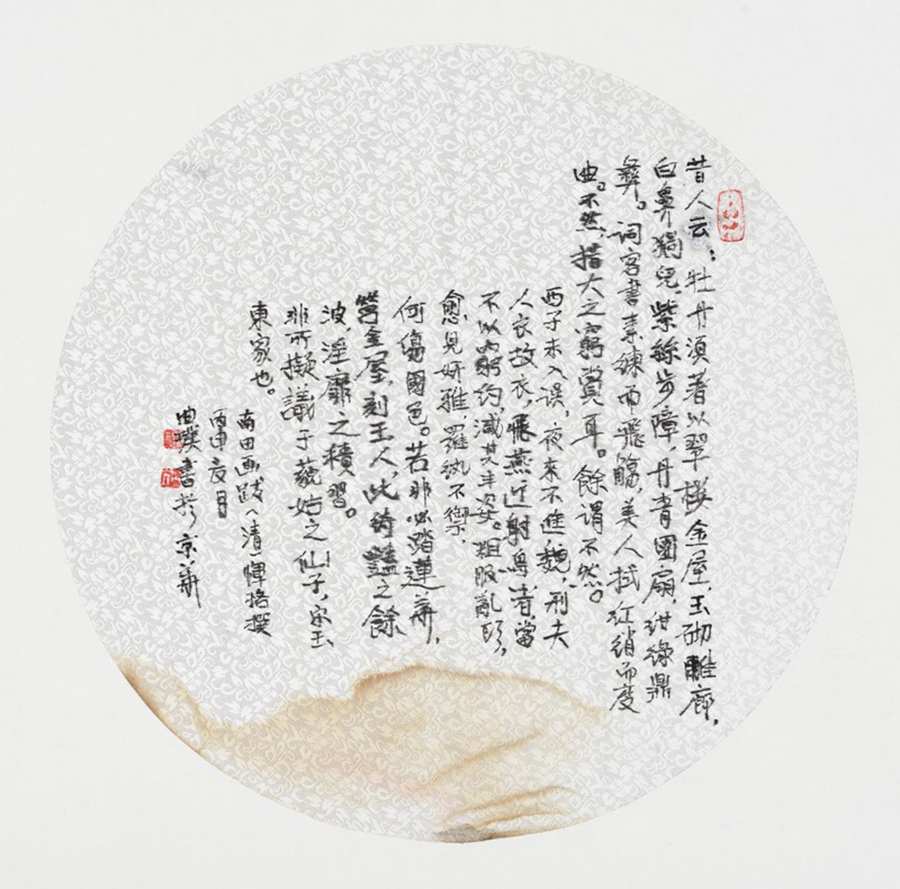 昔人云：牡丹須著以翠楼金屋，玉砌雕廊，
白鼻猧兒，紫絲步障，丹青團扇，紺綠鼎
彝。词客書素練而飛觴，美人拭红綃而度
曲。不然，措大之窮賞耳。餘謂不然。
西子未入误，夜来不進魏，刑夫
人衣故衣，飛燕近射鳥者，當
不以窮约，減其丰姿。粗服亂頭，
愈見妍雅，羅紈不禦，
何傷國色。若非必踏蓮華，
營金屋，刻玉人，此綺豔之餘
波，淫靡之積習。
非所擬議于藐姑之仙子，宋玉
東家也。
南田画跋〈清〉惲格撰
丙申夏月
璞書於京華